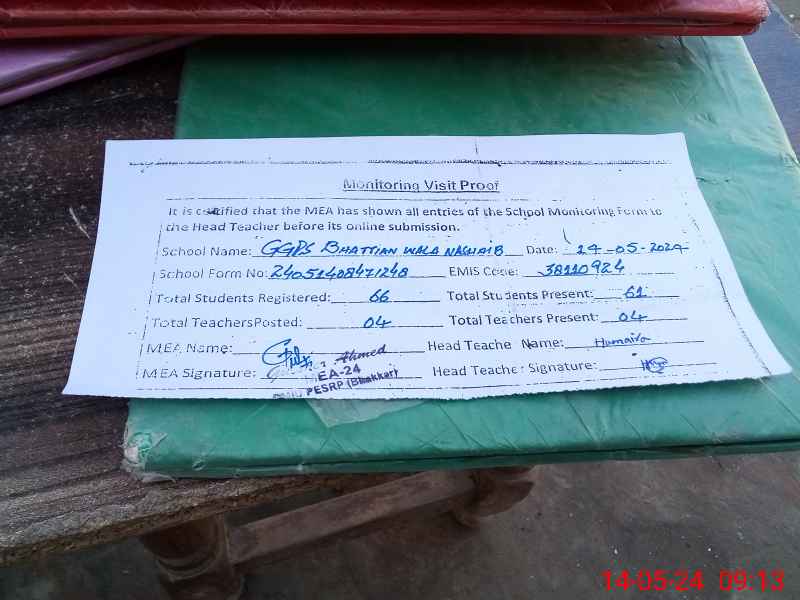 Monitoring Visit Proof
It is certified that the MEA has shown all entries of the School Monitoring Form to
the Head Teacher before its online submission.
School Name: GGPS BHATTIAN WALA NASHAIB Date: 14-05-2024
School Form No: 24051408471248 EMIS Code: 38110924
Total Students Registered: 66 Total Students Present: 61
Total TeachersPosted: 04 Total Teachers Present: 04
MEA Name: Ahmed Head Teacher Name: Humaira
MEA Signature: EA-24 Head Teacher Signature:
PESRP (Bhakkar)
14-05-24 09:13